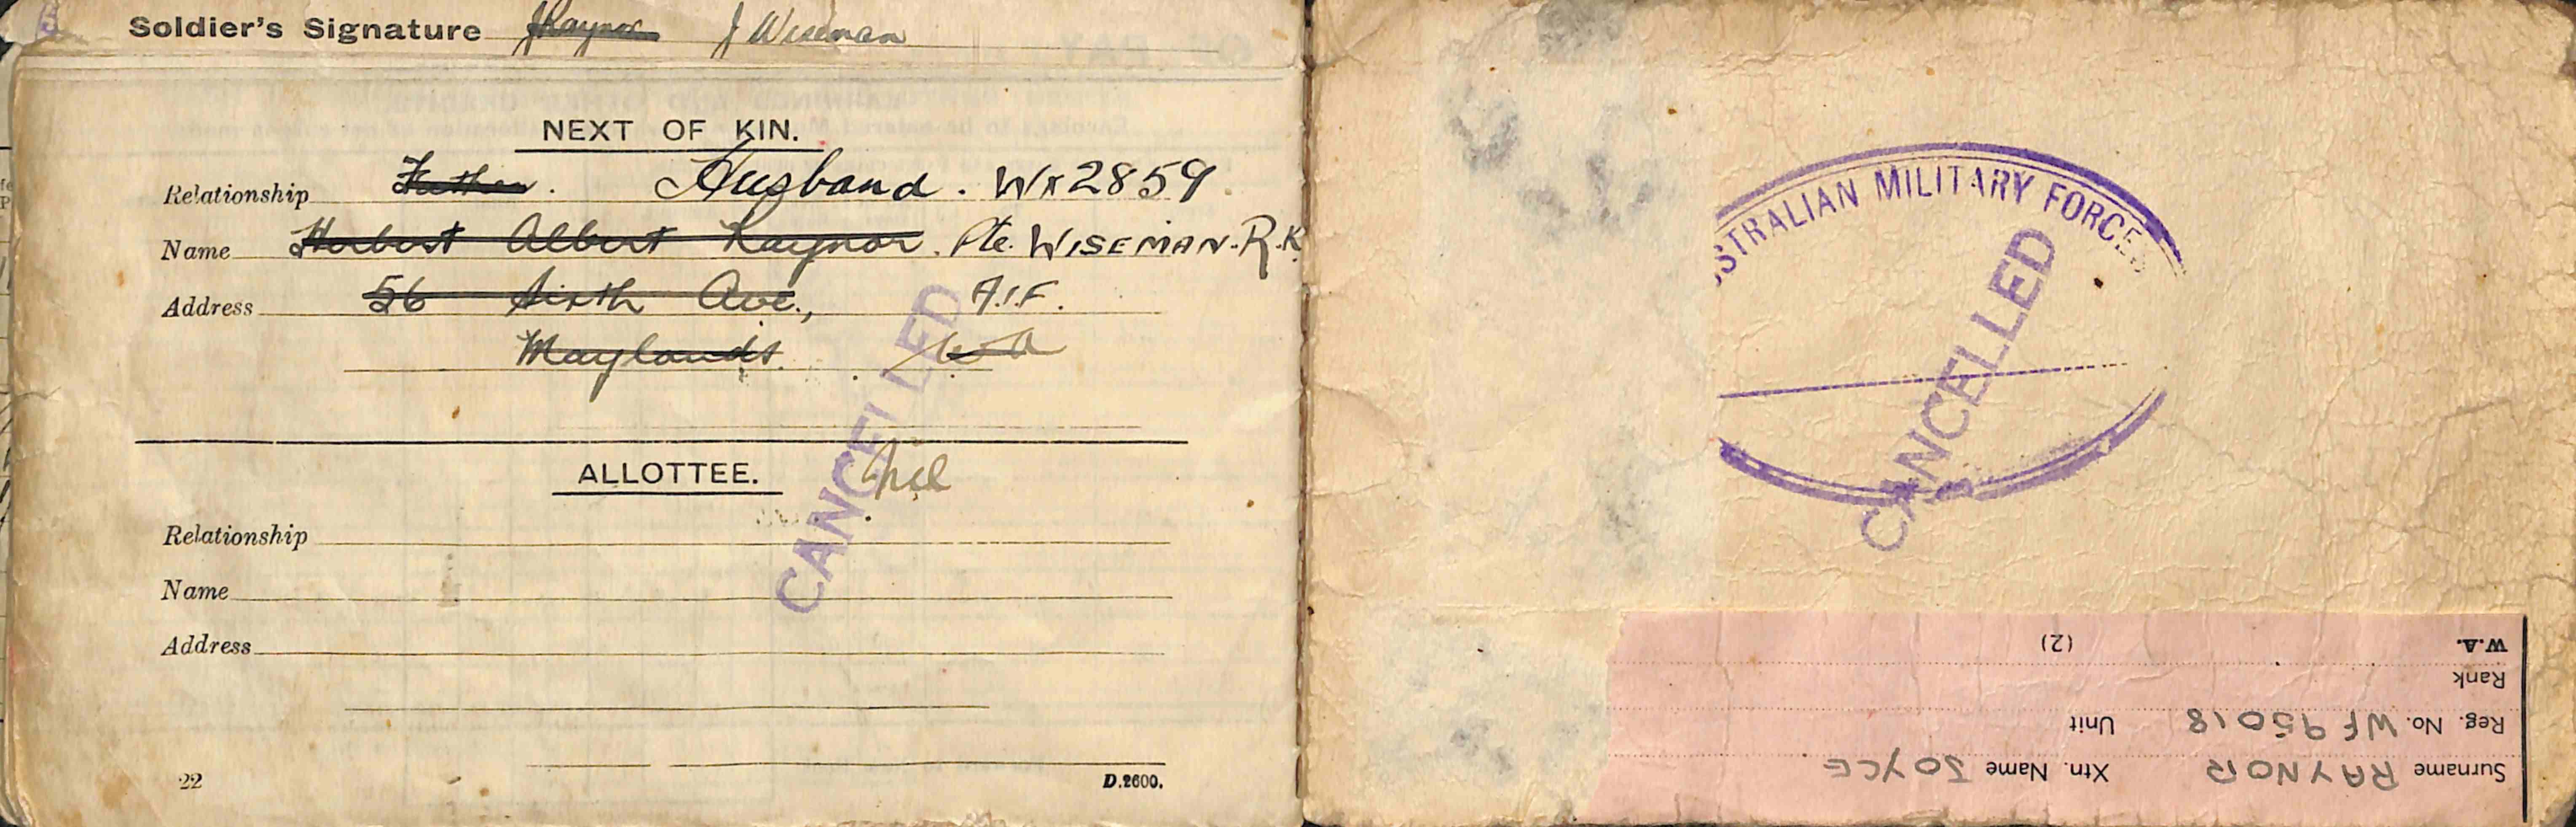 Soldier's Signature JRaynor J Wiseman
NEXT OF KIN.
Relationship Father. Husband. WX2859
Name Herbert Albert Raynor. Pte. WISEMAN. R.K.
Address 56 Sixth Ave., A.I.F.
Maylands. WA
CANCELLED
ALLOTTEE. Nil
Relationship
Name
Address
22 D.2600.
STRALIAN MILITARY FORCES
CANCELLED
Surname RAYNOR Xtn. Name JOYCE
Reg. No. WF95018 Unit
Rank
W.A. (2)